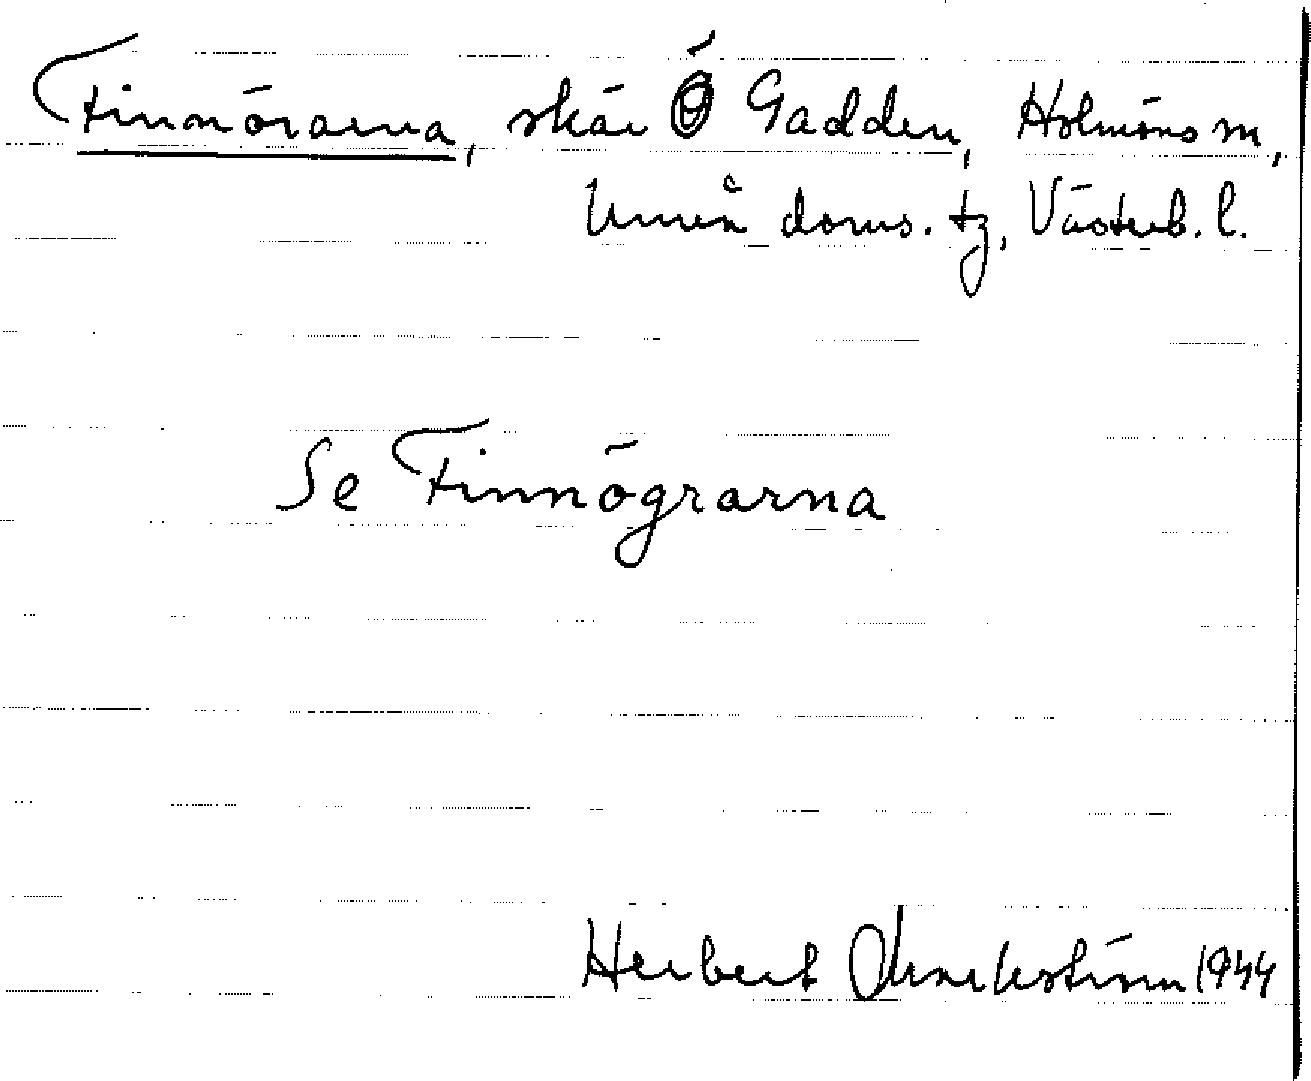 Finnörarna, skär Ö Gadden, Holmöns sn,
Umeå doms. tg, Västerb. l.
Se Finnögrarna
Herbert 1944